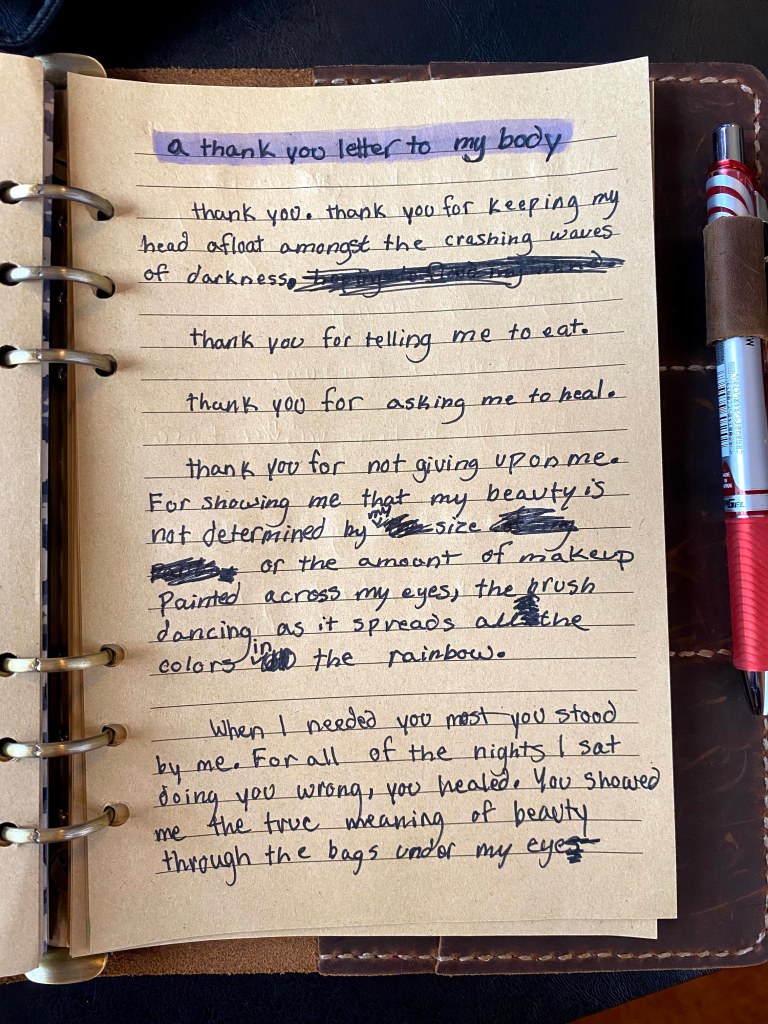 a thank you letter to my body
thank you. thank you for keeping my
head afloat amongst the crashing waves
of darkness.
thank you for telling me to eat.
thank you for asking me to heal.
thank you for not giving up on me.
For showing me that my beauty is
not determined by my size
or the amount of makeup
Painted across my eyes, the brush
dancing as it spreads all the
colors in the rainbow.
When I needed you most you stood
by me. For all of the nights I sat
doing you wrong, you healed. You showed
me the true meaning of beauty
through the bags under my eyes